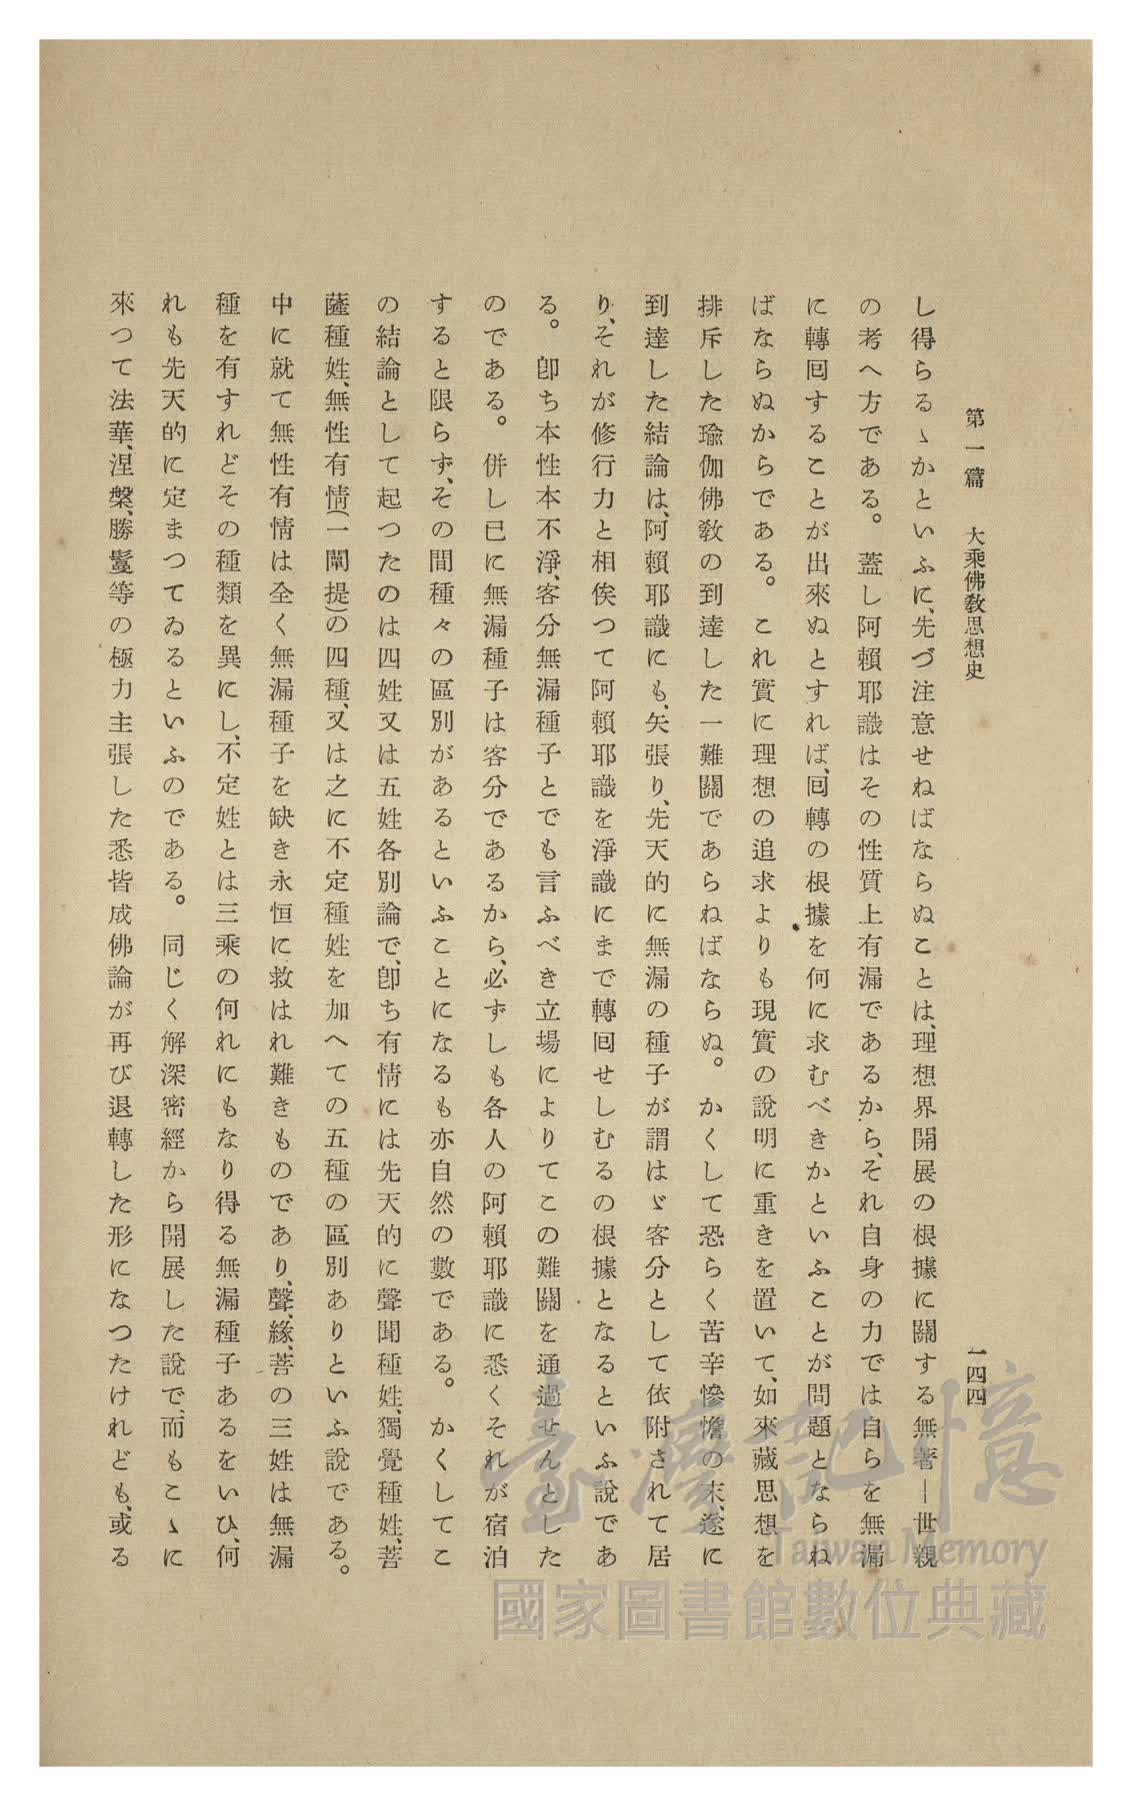 第一篇　大乘佛教思想史
一四四
し得らるゝかといふに、先づ注意せねばならぬことは、理想界開展の根據に關する無著―世親
の考へ方である。蓋し阿賴耶識はその性質上有漏であるから、それ自身の力では自らを無漏
に轉囘することが出來ぬとすれば、囘轉の根據を何に求むべきかといふことが問題とならね
ばならぬからである。これ實に理想の追求よりも現實の說明に重きを置いて、如來藏思想を
排斥した瑜伽佛教の到達した一難關であらねばならぬ。かくして恐らく苦辛慘憺の末、遂に
到達した結論は、阿賴耶識にも、矢張り、先天的に無漏の種子が謂はゞ客分として依附されて居
り、それが修行力と相俟つて阿賴耶識を淨識にまで轉囘せしむるの根據となるといふ說であ
る。卽ち本性本不淨、客分無漏種子とでも言ふべき立場によりてこの難關を通過せんとした
のである。併し已に無漏種子は客分であるから、必ずしも各人の阿賴耶識に悉くそれが宿泊
すると限らず、その間種々の區別があるといふことになるも亦自然の數である。かくしてこ
の結論として起つたのは四姓又は五姓各別論で、卽ち有情には先天的に聲聞種姓、獨覺種姓、菩
薩種姓、無性有情(一闡提)の四種、又は之に不定種姓を加へての五種の區別ありといふ說である。
中に就て無性有情は全く無漏種子を缺き永恒に救はれ難きものであり、聲、緣、菩の三姓は無漏
種を有すれどその種類を異にし、不定姓とは三乘の何れにもなり得る無漏種子あるをいひ、何
れも先天的に定まつてゐるといふのである。同じく解深密經から開展した說で、而もこゝに
來つて法華、涅槃、勝鬘等の極力主張した悉皆成佛論が再び退轉した形になつたけれども、或る
臺灣記憶
Taiwan Memory
國家圖書館數位典藏